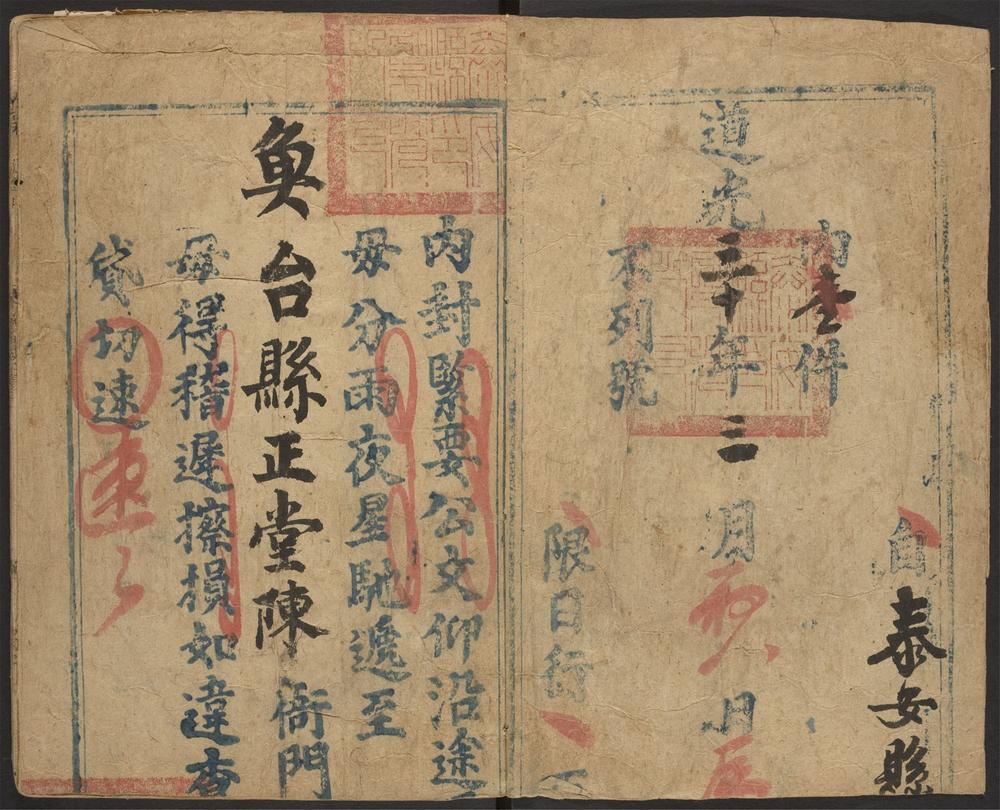 自泰安縣
內壹件
道光三十年三月初八日
不列號
限日行
內封緊要公文仰沿途
毋分雨夜星馳遞至
魚台縣正堂陳 衙門
毋得稽遲擦損如違查
貸切速
速